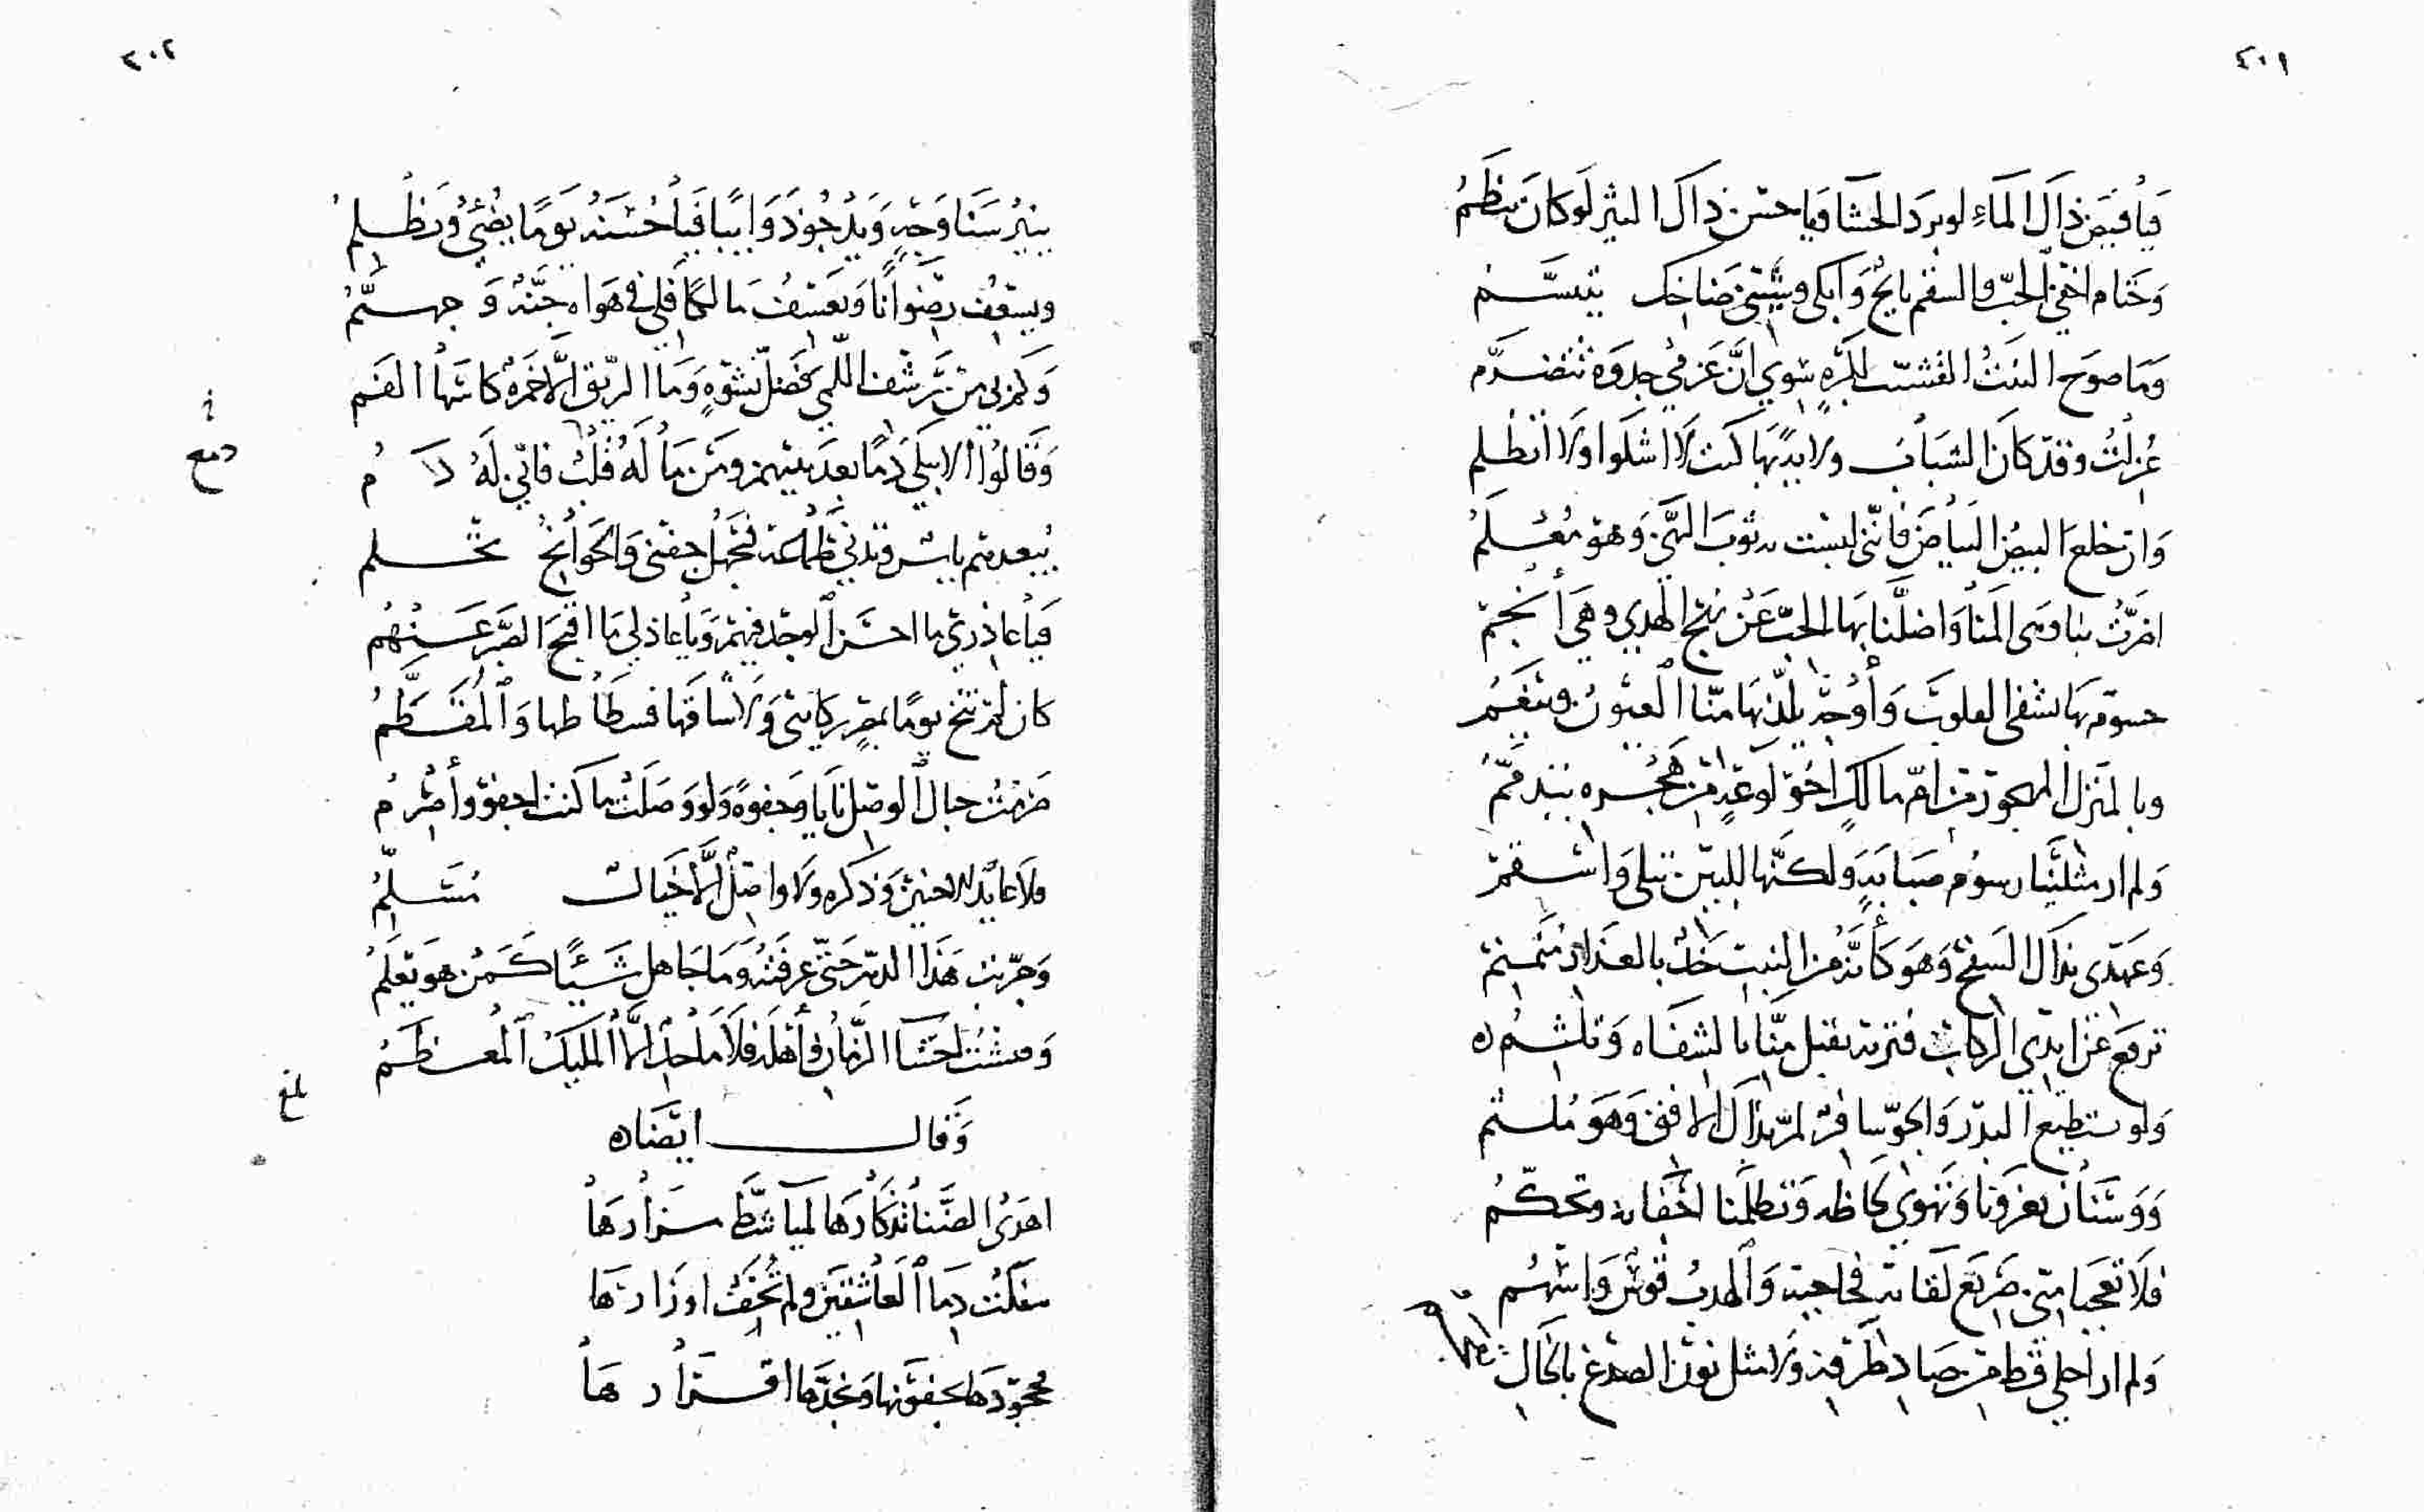 ٢٠١
فيا فيض ذاك الماء لو برد الحشا ويا حسن ذاك النثر لو كان ينظم
وختام اخفي الحب والسقم بايح وابكي وشيبي ضاحك يتبسم
وما صوح النبت القشيب لكرة سوي ان عزفي جدوة تتضرم
عزلت وقد كان الشباب ولايتي بها كنت لا اشكوا ولا اتظلم
وان خلع البيض البياض فانني لبست به ثوب النهى وهو معلم
اضرت بنا وهي المنا واضلنا بها الحب عن نهج الهدي وهي انجم
جسوم بها تشفى القلوب واوجه يلذ بها منا العيون وينعم
وبالمنزل المهجور من ام مالك اخو لوعة من هجره يتذمم
ولم ار مثلينا رسوم صبابة ولكنها للبين تبلى واسقم
وعهدي بذاك السفح وهو كانه من النبت خد بالعذار منمنم
ترفع عن ايدي الركاب فتربه تقبل منا بالشفاه وتلثم
ولو يستطيع البدر والجو سافر لمر بذاك الافق وهو ملثم
ووسنان يغزونا ونهوي لحاظه وتظلمنا اجفانه وتحكم
فلا تعجبا مني صريع لقائه فحاجبه والهدب قوس واسهم
ولم ار احلي قط من صاد طرفه ولا مثل نون الصدغ بالخال
٢٠٢
ينير سنا وجه ويدجو ذوايبا فيا حسنه يوما يضيء ويظلم
ويسعف رضوانا ويعسف مالكا فلي في هواه جنة وجهنم
وكم لي من ترشف اللمي فضل نشوة وما الريق الا خمرة كاسها الفم
وقالوا الا يبكي دما بعد بينهم ومن ما له قلب فاني له دم
دمع
فيا عاذري ما احسن الوجد فيهم ويا عاذلي ما اقبح الصبر عنهم
كان لم تنخ يوما بمصر ركايبي ولا شاقها فسطاطها والمقطم
صرمت حبال الوصل نايا وجفوة ولو وصلت ما كنت اجفو واصرم
فلا عايد الا حنين وذكره ولا واصل الا خيال مسلم
وجربت هذا الدهر حتى عرفته وما جاهل شيئا كمن هو يعلم
وفتشت احشا الزمان واهله فلا ملجا الا المليك المعظم
بلغ
وقال ايضاه
اهدى الضنا تذكارها لميا شط مزارها
سفكت دما العاشقين ولم تخف اوزارها
فجحودها بجفونها وبخدها اقرارها